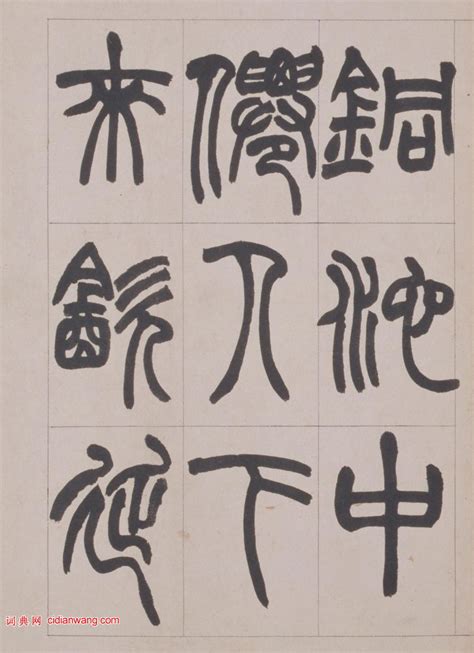 銅池中
僊人下
來飲延
词典网 cidianwang.com